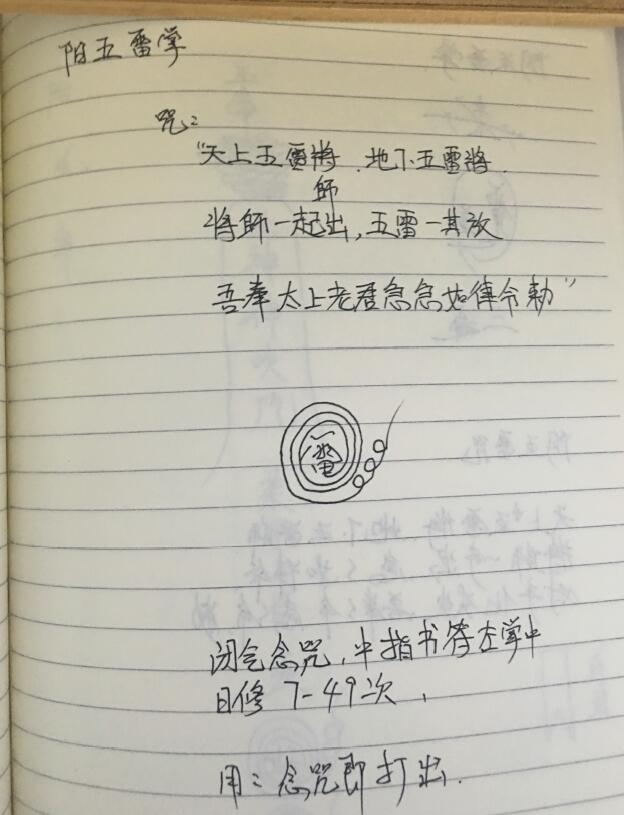 阳五雷掌
咒：
“天上五雷将．地下五雷将．
师
将師一起出，五雷一其放
吾奉太上老君急急如律令勅”
雷
闭气念咒，中指书符在掌中
日修7-49次，
用：念咒即打出．